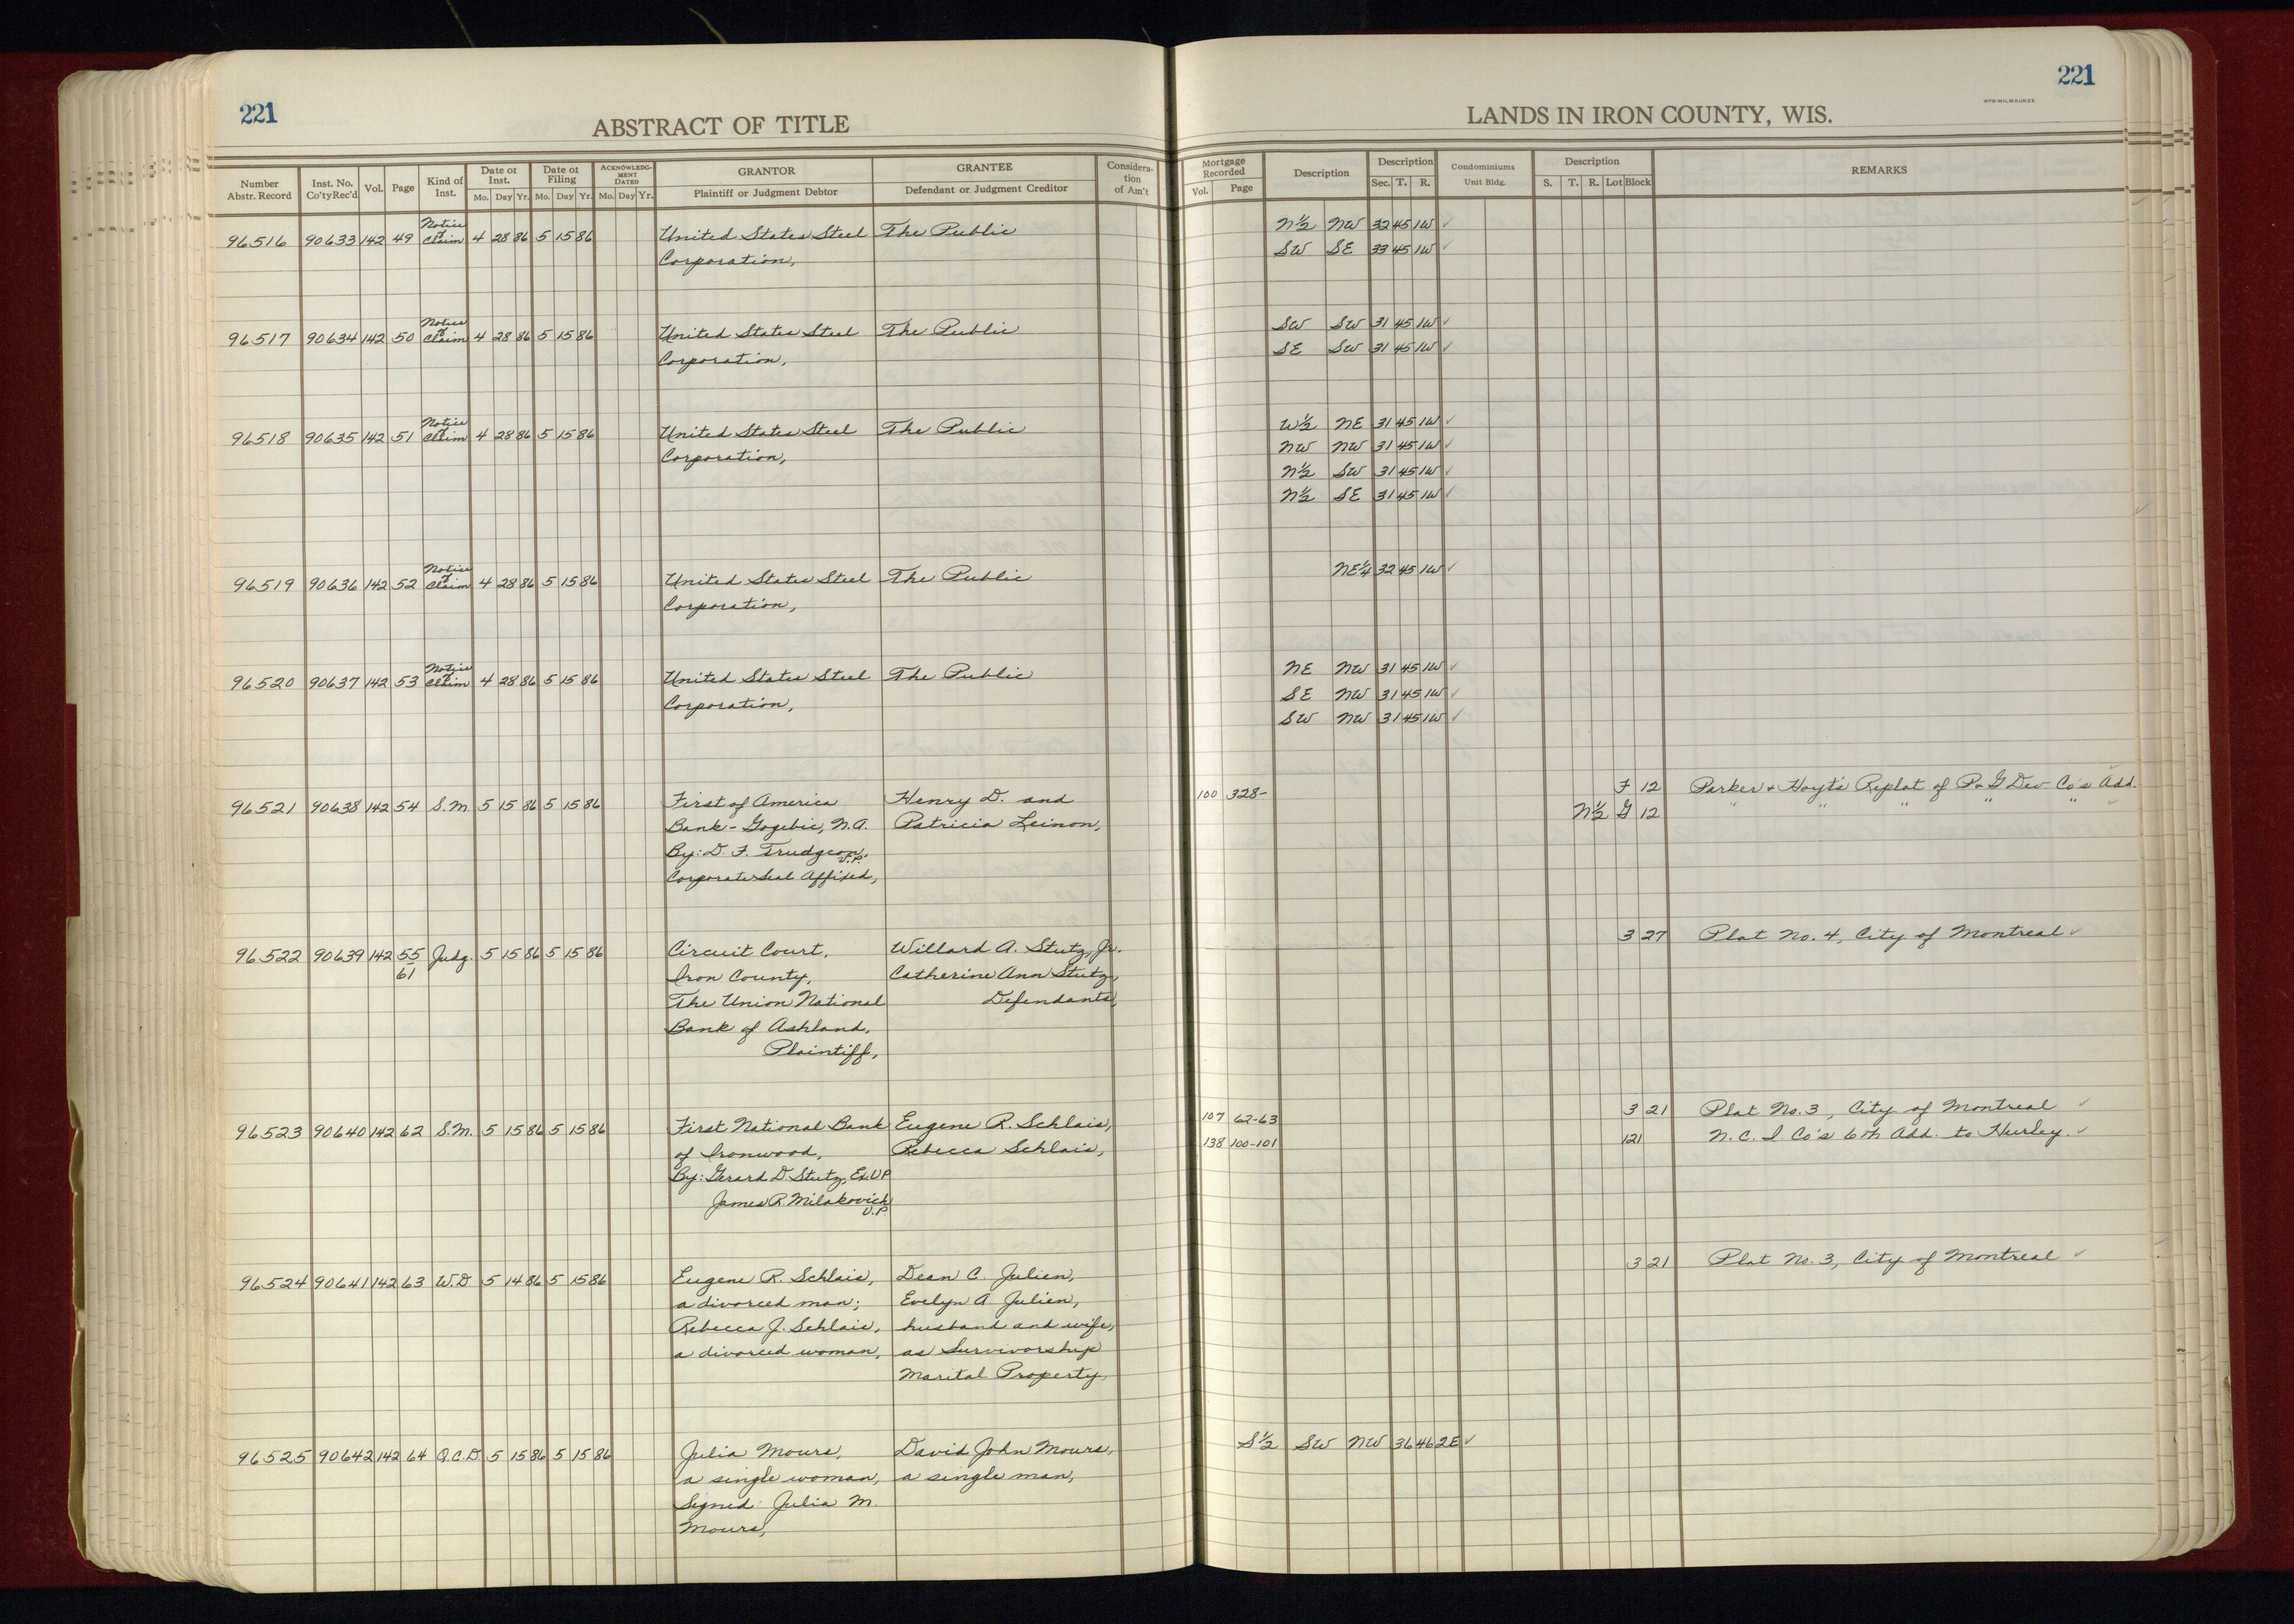 221
ABSTRACT OF TITLE
Number Abstr. Record | Inst. No. Co'tyRec'd | Vol. | Page | Kind of Inst. | Date of Inst. Mo. Day Yr. | Date of Filing Mo. Day Yr. | ACKNOWLEDGMENT DATED Mo. Day Yr. | GRANTOR Plaintiff or Judgment Debtor | GRANTEE Defendant or Judgment Creditor | Consideration of Am't
96516 90633 142 49 Notice of Claim 4 28 86 5 15 86 United States Steel The Public
Corporation,
96517 90634 142 50 Notice of Claim 4 28 86 5 15 86 United States Steel The Public
Corporation,
96518 90635 142 51 Notice of Claim 4 28 86 5 15 86 United States Steel The Public
Corporation,
96519 90636 142 52 Notice of Claim 4 28 86 5 15 86 United States Steel The Public
Corporation,
96520 90637 142 53 Notice of Claim 4 28 86 5 15 86 United States Steel The Public
Corporation,
96521 90638 142 54 S.M. 5 15 86 5 15 86 First of America Henry D. and
Bank - Gogebic, N.A. Patricia Leinon,
By: D. F. Trudgeon, V.P.
Corporate Seal Affixed,
96522 90639 142 55 61 Judg. 5 15 86 5 15 86 Circuit Court, Willard A. Stutz, Jr.
Iron County, Catherine Ann Stutz,
The Union National Defendants,
Bank of Ashland,
Plaintiff,
96523 90640 142 62 S.M. 5 15 86 5 15 86 First National Bank Eugene R. Schlais,
of Ironwood, Rebecca Schlais,
By: Gerard D. Stutz, Ex. V.P
James R. Milakovich
V.P
96524 90641 142 63 W.D 5 14 86 5 15 86 Eugene R. Schlais, Dean C. Julien,
a divorced man; Evelyn A. Julien,
Rebecca J. Schlais, husband and wife,
a divorced woman, as Survivorship
Marital Property,
96525 90642 142 64 Q.C.D. 5 15 86 5 15 86 Julia Moura, David John Moura,
a single woman, a single man,
Signed: Julia M.
Moura,
221
WPB-MILWAUKEE
LANDS IN IRON COUNTY, WIS.
Mortgage Recorded Vol. Page | Description | Description Sec. T. R. | Condominiums Unit Bldg. | Description S. T. R. Lot Block | REMARKS
N½ NW 32 45 1W ✓
SW SE 33 45 1W ✓
SW SW 31 45 1W ✓
SE SW 31 45 1W ✓
W½ NE 31 45 1W ✓
NW NW 31 45 1W ✓
N½ SW 31 45 1W ✓
N½ SE 31 45 1W ✓
NE¼ 32 45 1W ✓
NE NW 31 45 1W ✓
SE NW 31 45 1W ✓
SW NW 31 45 1W ✓
100 328- F 12 Parker & Hoyt's Replat of P & G Dev Co's Add. ✓
N½ G 12 " " " " " ✓
3 27 Plat No. 4, City of Montreal ✓
107 62-63 3 21 Plat No. 3, City of Montreal ✓
138 100-101 121 N. C. I Co's 6th Add. to Hurley. ✓
3 21 Plat No. 3, City of Montreal ✓
S½ SW NW 36 46 2E ✓